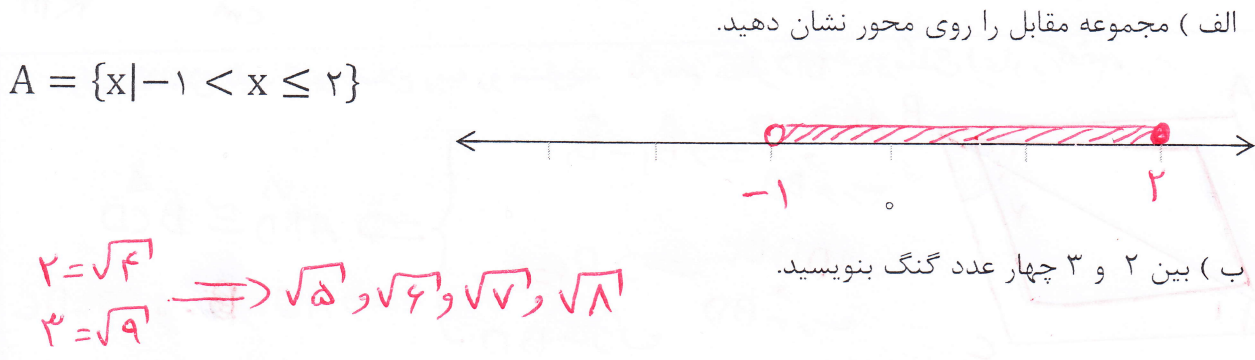 الف ) مجموعه مقابل را روی محور نشان دهید.
A = {x|−۱ < x ≤ ۲}
−۱ ° ۲
ب ) بین ۲ و ۳ چهار عدد گنگ بنویسید.
۲=√۴
۳=√۹ ⟹ √۵ و √۶ و √۷ و √۸